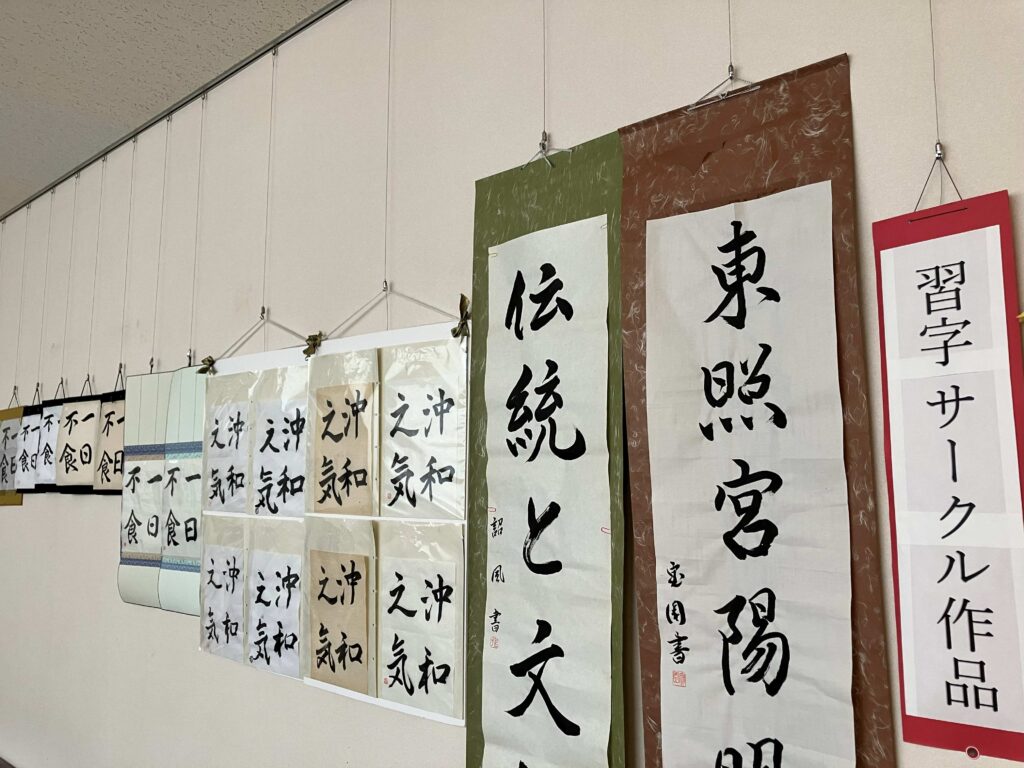 習字サークル作品
東照宮陽明
伝統と文
詔風書
沖和
之気
沖和
之気
沖和
之気
沖和
之気
沖和
之気
沖和
之気
沖和
之気
沖和
之気
一日
不食
一日
不食
一日
不食
一日
不食
不食
一日
不食
一日
不食